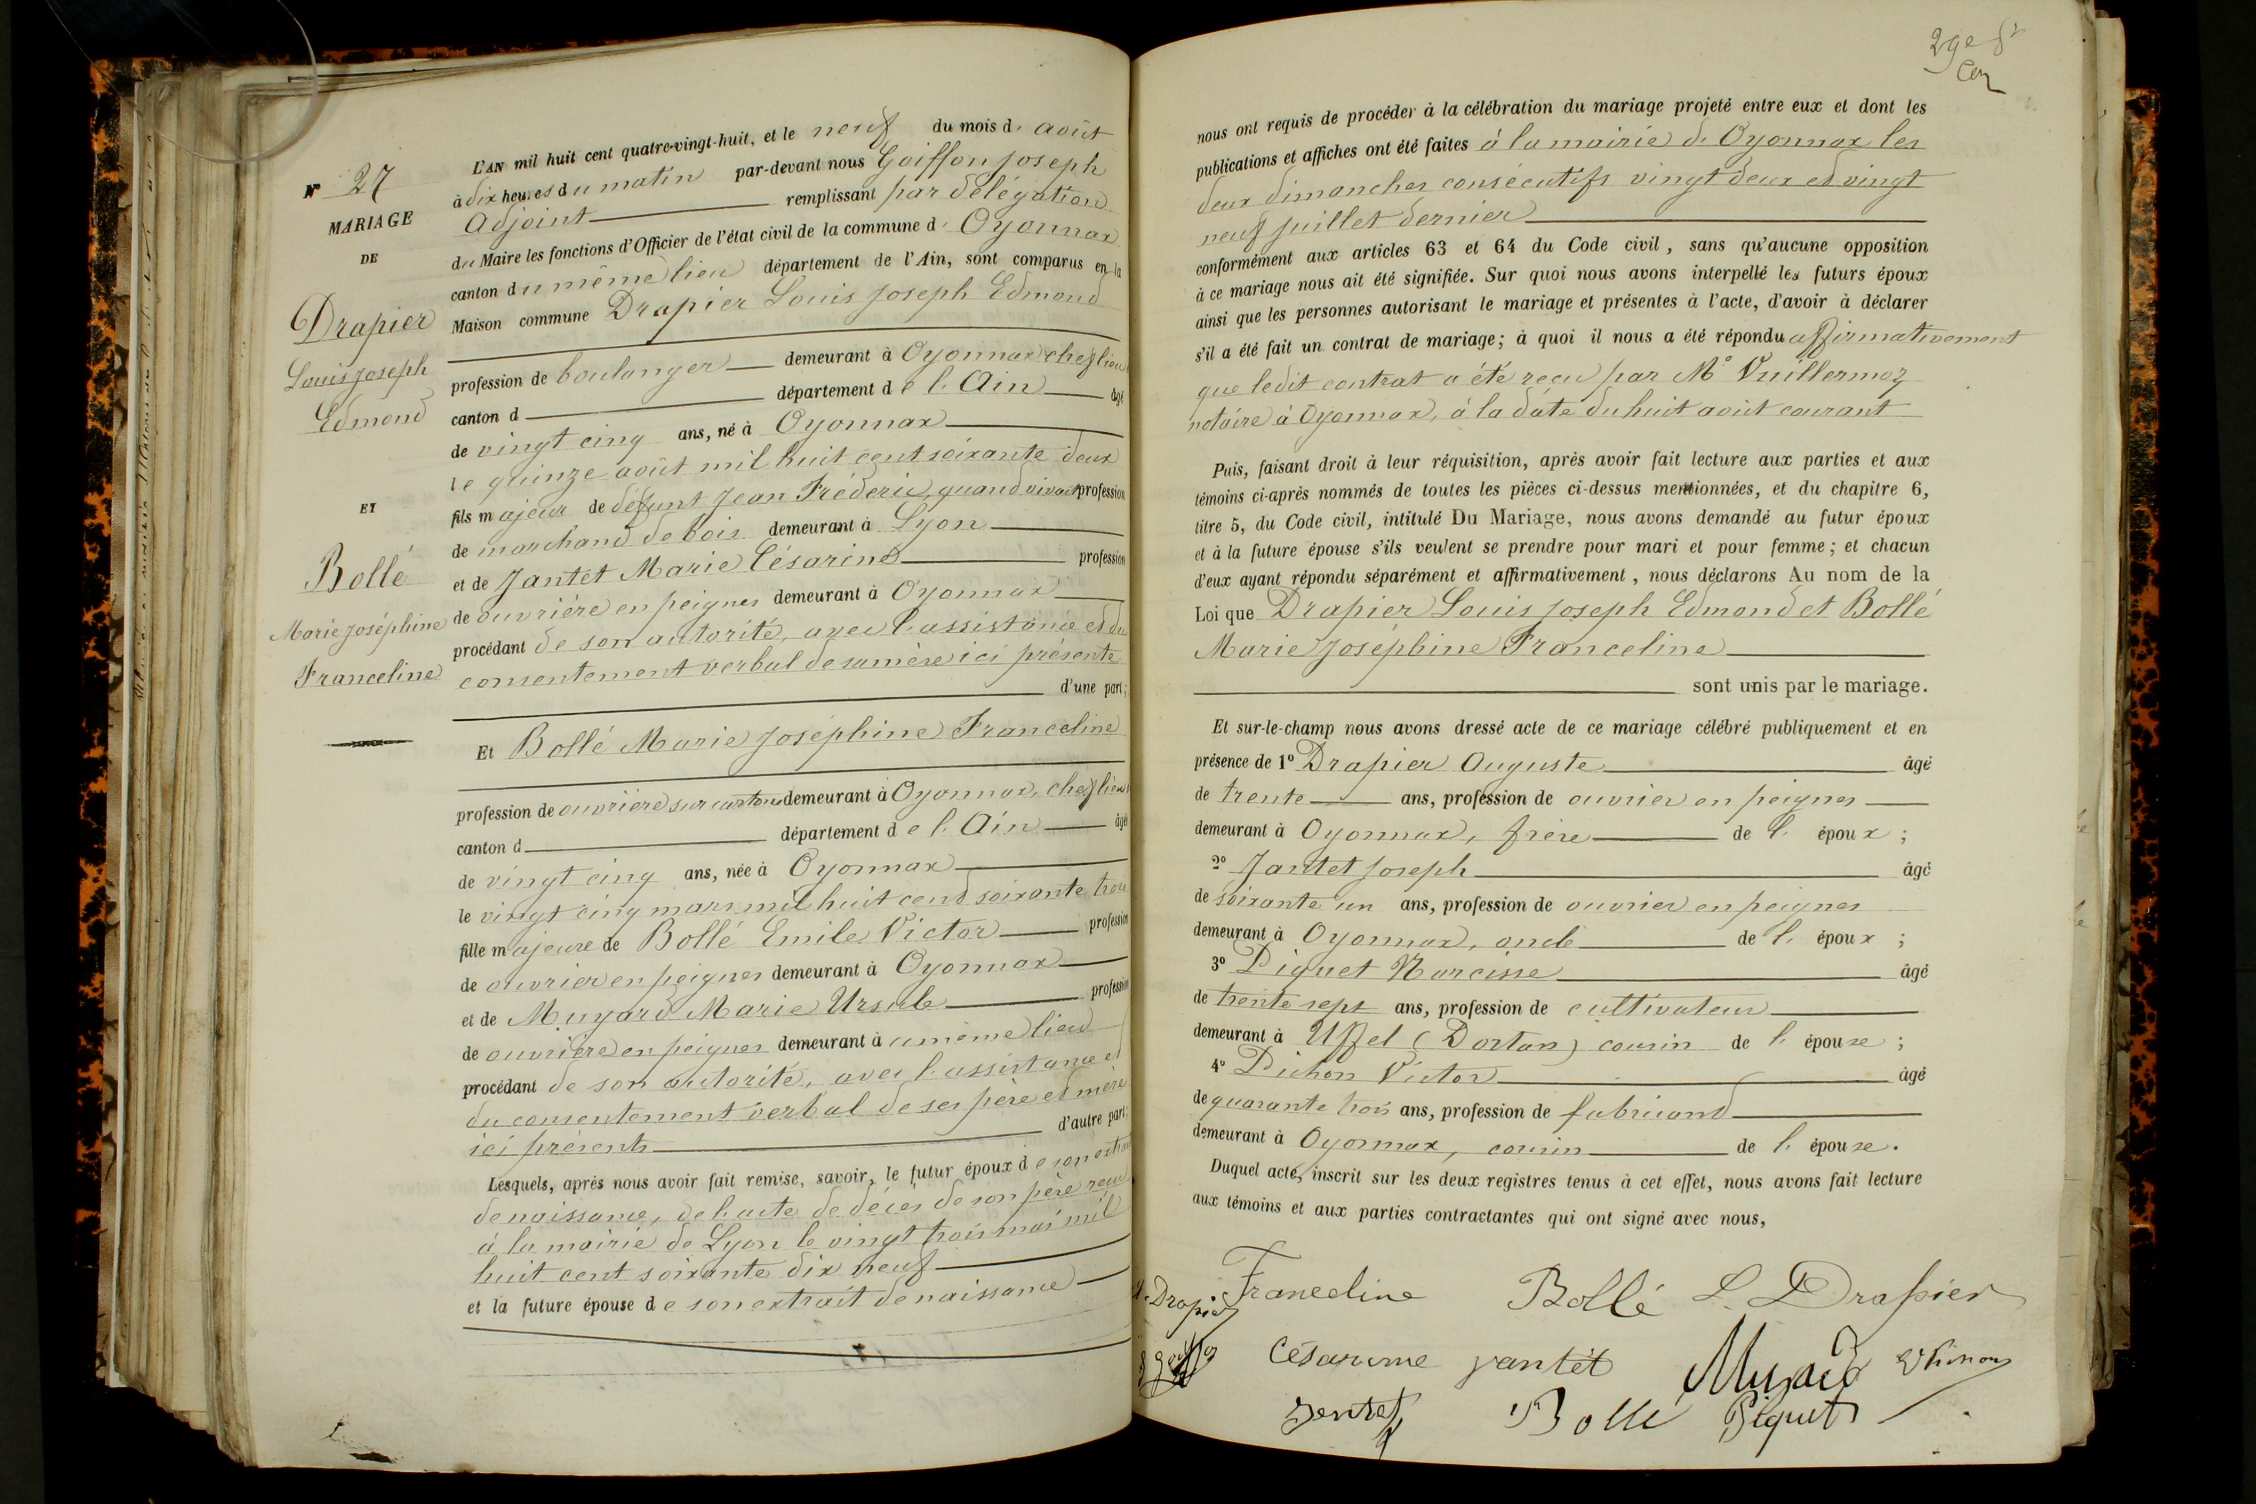 N° 27
MARIAGE
DE
Drapier
Louis Joseph
Edmond
ET
Bollé
Marie Joséphine
Franceline
L'AN mil huit cent quatre-vingt-huit, et le neuf du mois d' août
à dix heures du matin par-devant nous Goiffon Joseph
Adjoint remplissant par délégation
du Maire les fonctions d'Officier de l'état civil de la commune d' Oyonnax
canton du même lieu département de l'Ain, sont comparus en la
Maison commune Drapier Louis Joseph Edmond
profession de boulanger demeurant à Oyonnax chef lieu
canton d département de l'Ain âgé
de vingt cinq ans, né à Oyonnax
le quinze août mil huit cent soixante deux
fils majeur de défunt Jean Fréderic, quand vivait profession
de marchand de bois demeurant à Lyon
et de Jantet Marie Césarine profession
de ouvrière en peignes demeurant à Oyonnax
procédant de son autorité, avec l'assistance et du
consentement verbal de sa mère ici présente
d'une part;
Et Bollé Marie Joséphine Franceline
profession de ouvriere sur cartons demeurant à Oyonnax, chef lieu
canton d département de l'Ain âgée
de vingt cinq ans, née à Oyonnax
le vingt cinq mars mil huit cent soixante trois
fille majeure de Bollé Emile Victor profession
de ouvrier en peignes demeurant à Oyonnax
et de Muyard Marie Ursule profession
de ouvrière en peignes demeurant au même lieu
procédant de son autorité, avec l'assistance et
du consentement verbal de ses père et mère
ici présents d'autre part;
Lesquels, après nous avoir fait remise, savoir, le futur époux de son extrait
de naissance, de l'acte de décès de son père reçu
à la mairie de Lyon le vingt trois mai mil
huit cent soixante dix neuf
et la future épouse de son extrait de naissance
nous ont requis de procéder à la célébration du mariage projeté entre eux et dont les
publications et affiches ont été faites à la mairie d'Oyonnax les
deux dimanches consécutifs vingt deux et vingt
neuf juillet dernier
conformément aux articles 63 et 64 du Code civil, sans qu'aucune opposition
à ce mariage nous ait été signifiée. Sur quoi nous avons interpellé les futurs époux
ainsi que les personnes autorisant le mariage et présentes à l'acte, d'avoir à déclarer
s'il a été fait un contrat de mariage; à quoi il nous a été répondu affirmativement
que ledit contrat a été reçu par Me Vuillermoz
notaire à Oyonnax, à la date du huit août courant
Puis, faisant droit à leur réquisition, après avoir fait lecture aux parties et aux
témoins ci-après nommés de toutes les pièces ci-dessus mentionnées, et du chapitre 6,
titre 5, du Code civil, intitulé Du Mariage, nous avons demandé au futur époux
et à la future épouse s'ils veulent se prendre pour mari et pour femme; et chacun
d'eux ayant répondu séparément et affirmativement, nous déclarons Au nom de la
Loi que Drapier Louis Joseph Edmond et Bollé
Marie Joséphine Franceline
sont unis par le mariage.
Et sur-le-champ nous avons dressé acte de ce mariage célébré publiquement et en
présence de 1° Drapier Auguste âgé
de trente ans, profession de ouvrier en peignes
demeurant à Oyonnax, frère de l'époux;
2° Jantet Joseph âgé
de soixante un ans, profession de ouvrier en peignes
demeurant à Oyonnax, oncle de l'époux;
3° Piquet Narcisse âgé
de trente sept ans, profession de cultivateur
demeurant à Uffel (Dortan) cousin de l'épouse;
4° Pichon Victor âgé
de quarante trois ans, profession de fabricant
demeurant à Oyonnax, cousin de l'épouse.
Duquel acte, inscrit sur les deux registres tenus à cet effet, nous avons fait lecture
aux témoins et aux parties contractantes qui ont signé avec nous,
Drapier Franceline Bollé L. Drapier
Césarine Jantet Muyard
Jentet Bollé Piquet